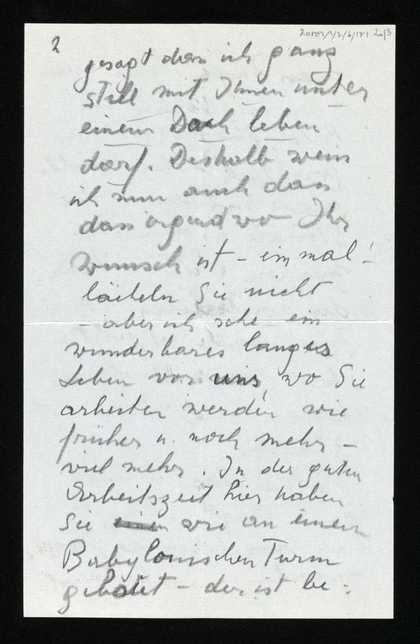 2
gesagt dass ich ganz
still mit Ihnen unter
einem Dach leben
darf. Deshalb weiss
ich nun auch dass
dass irgendwo Ihr
Wunsch ist – einmal!
lächeln Sie nicht
– aber ich sehe ein
wunderbares langes
Leben vor uns, wo Sie
arbeiten werden wie
früher u. noch mehr –
viel mehr. In der guten
Arbeitszeit hier haben
Sie wie an einem
Babylonischen Turm
gebaut – der ist be-